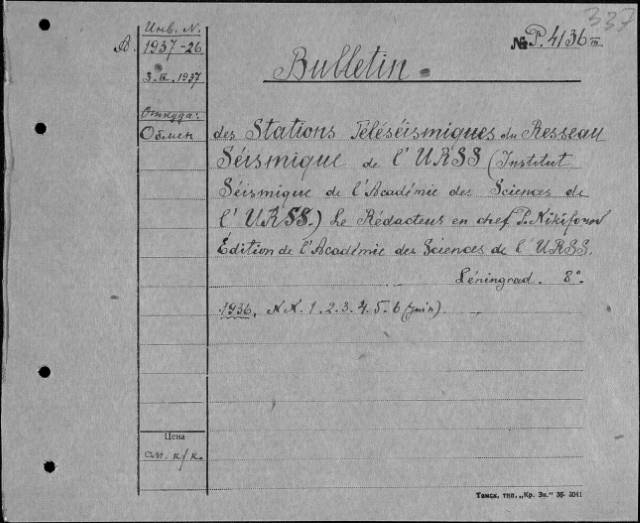 337
Инв. N.
А. 1937-26
№ P. 4136 IV
3. IX. 1937
Bulletin.
Откуда:
Обмен
des Stations Téléséismiques du Resseau
Séismique de l'URSS (Institut
Séismique de l'Académie des Sciences de
l'URSS.) Le Rédacteur en chef P. Nikiforov
Édition de l'Académie des Sciences de l'URSS.
Léningrad. 8°.
1936, NN. 1. 2. 3. 4. 5. 6 (juin).
Цена
см. к/к.
Томск, тип. „Кр. Зн." 36. 2041